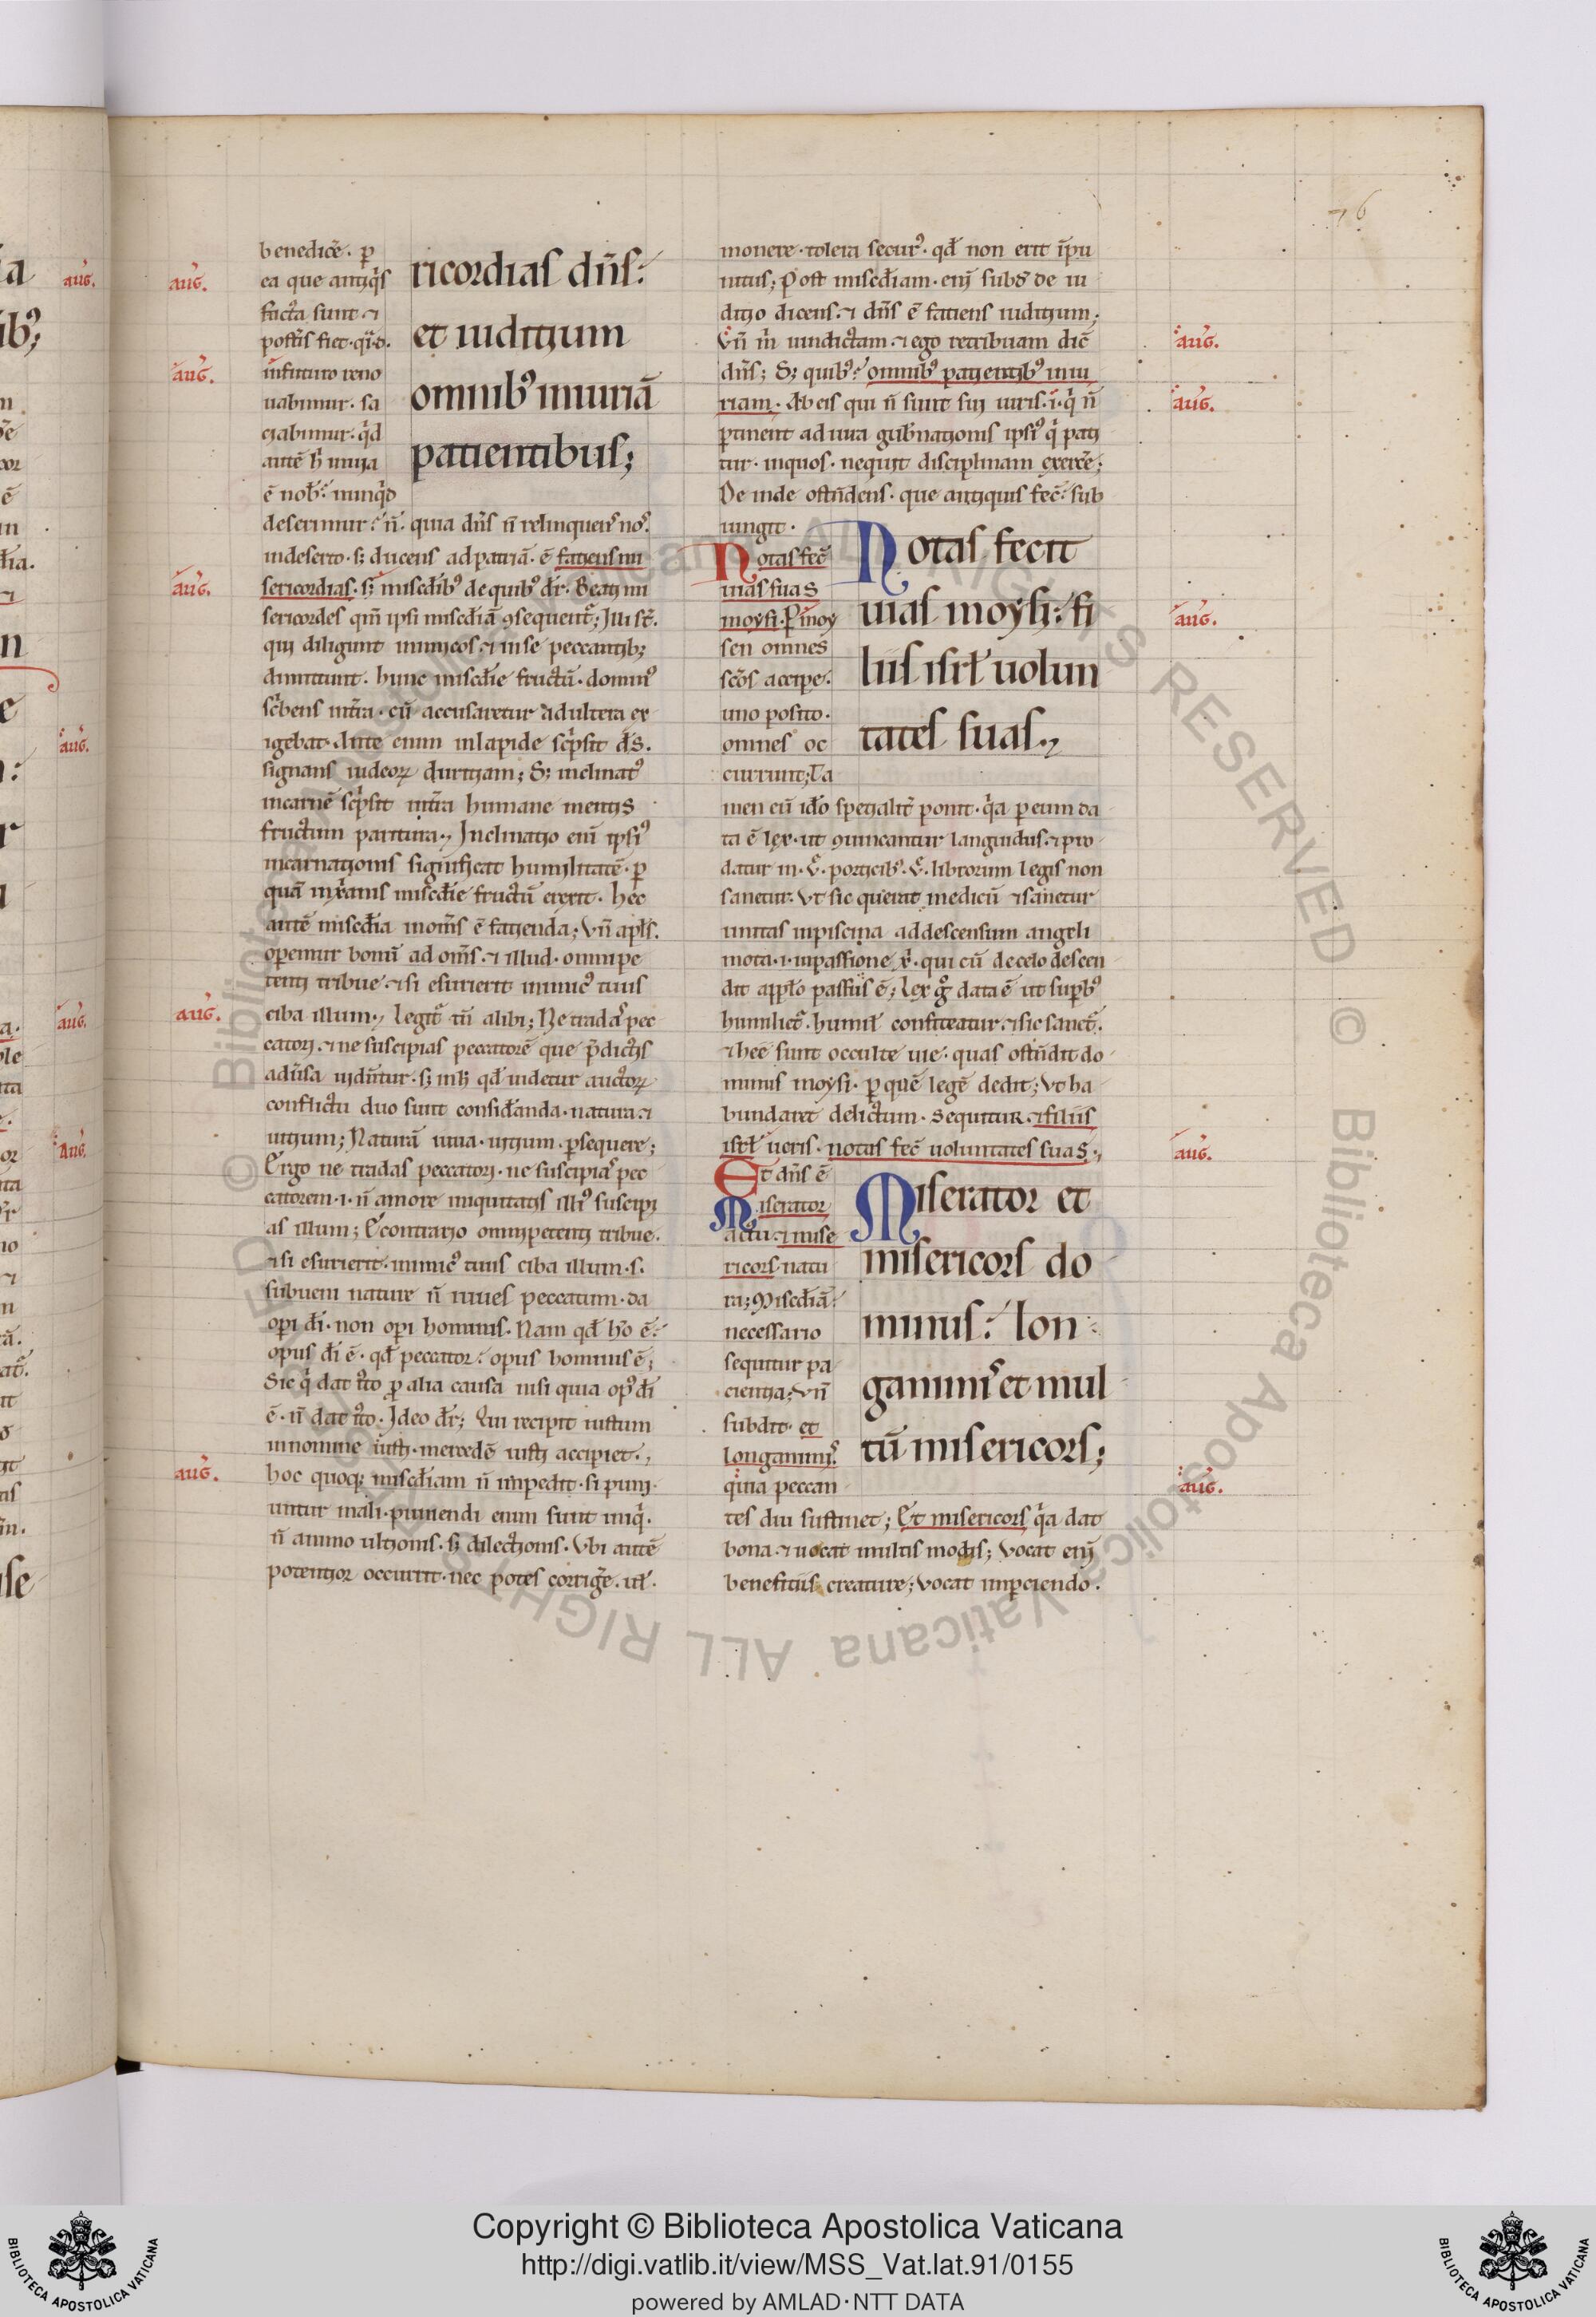 benedicē. p̄
ea que antiq̇s
facta sunt ⁊
post̄is fiet. q̄.d.
infuturo reno
uabimur. sa
ciabimur. q̇d
autē h̄ in uia
ē nob̄. nunq̇d
ricordias dn̄s:
et iuditium
omnib⁹ iniuriā
patientibus;
deserimur? n̄. quia dn̄s n̄ relinquens nos.
indeserto. s; ducens adpatriā. ē fatiens mi
sericordias. s; misc̄dib⁹ de quib⁹ dr̄. Beati mi
sericordes qm̄ ipsi misc̄diā ꝯsequent̄; Illi st̄.
qui diligunt inimicos. ⁊ inse peccantib;
dimittunt. hunc misc̄die fructū. domin⁹
sc̄bens int̄ra. cū accusaretur adultera ex
igebat. Ante enim inlapide sc̄psit d̄s.
signans iudeoꝝ duritiam; S; inclinat⁹
incarnē sc̄psit int̄ra humane mentis
fructum paritura., Inclinatio enī ipsi⁹
incarnationis significat humilitatē. p̄
quā inxp̄ianis misc̄die fructū exerit. hec
autē misc̄dia inom̄s ē fatienda; Vn̄ apl̄s.
operemur bonū ad om̄s. ⁊ illud. omni pe
tenti tribue. ⁊ si esurierit inimic⁹ tuus
ciba illum., legit̄ tn̄ alibi; Ne tradas pec
catori. ⁊ ne suscipias peccatorē que p̄dictis
adūsa uidn̄tur. s; in h̄ qd̄ uidetur auctoꝝ
conflictu duo sunt considāanda. natura ⁊
uitium; Naturā iuua. uitium. p̄sequere;
Ergo ne tradas peccatori. ne suscipias pec
catorem. i. n̄ amore iniquitatis illi⁹ suscipi
as illum; Econtrario omnipetenti tribue.
⁊ si esurierit. inimic⁹ tuus ciba illum. s.
subueni nature n̄ iuues peccatum. da
operi dī. non operi hominis. Nam qd̄ hō ē:
opus dī ē. qd̄ peccator: opus hominis ē;
Sic q̇ dat iīto p̄ alia causa nisi quia op⁹ dī
ē. n̄ dat iīto. Ideo dr̄; Qui recipit iustum
innomine iusti. mercedē iusti accipiet.,
hoc quoq; misc̄diam n̄ impedit. si puni
untur mali. puniendi enim sunt iniq̇.
n̄ animo ultionis. s; dilectionis. Vbi autē
potentior occurrit. nec potes corrigē̄. ul̄.
monere. tolera secur⁹. qd̄ non erit īpu
nitus; Post misc̄diam. enī subd̄ de iu
ditio dicens. ⁊ dn̄s ē fatiens iuditium;
Vn̄ m̄ uindictam. ⁊ ego retribuam dic̄
dn̄s; S; quib⁹? omnib⁹ patientib⁹ iniu
riam. Ab eis qui n̄ sunt sui iuris. i. q̇ n̄
p̄tinent ad iura gub̄nationis ipsi⁹ q̇ pati
tur. iniquos. nequit disciplinam exercē̄;
De inde ostn̄dens. que antiquis fec̄. sub
iungit.
Notas fec̄
uias suas
moysi. P moy
sen omnes
sc̄os accipe.
uno posito.
omnes oc
currunt; Ta
Notas fecit
uias moysi: fi
liis isrl̄ uolun
tates suas.,
men eū idō spetialit̄ ponit. q̇a p eum da
ta ē lex. ut ꝯuincantur languidus. ⁊ pro
datur in .v. porticib⁹. v. librorum legis non
sanetur. Vt sic querat medicū ⁊ sanetur
unitas inpiscina addescensum angeli
mota. i. inpassione xp̄i. qui cū decelo descen
dit app̄lo passus ē; lex g̊ data ē ut sup̄b⁹
humiliet̄. humil̄ confiteatur. ⁊ sic sanet̄.
⁊ hee sunt occulte uie. quas ostn̄dit do
minus moysi. p quē legē dedit; Vt ha
bundaret delictum. Sequitur. ⁊ filiis
isrl̄ ueris. notas fec̄ uoluntates suas.,
Et dn̄s ē
Miserator
actu. ⁊ mise
ricors. natu
ra; Misc̄diā
necessario
sequitur pa
cientia; Vn̄
subdit. et
longanimis.
quia peccan
Miserator et
misericors do
minus: lon
ganimis et mul
tū misericors;
tes diu sustinet; Et misericors q̇a dat
bona. ⁊ uocat multis modis; Vocat enī
benefitiis creature; vocat imperciendo.
aug̅.
aug̅.
aug̅.
aug̅.
aug̅.
aug̅.
aug̅.
aug̅.
aug̅.
aug̅.
Copyright © Biblioteca Apostolica Vaticana
http://digi.vatlib.it/view/MSS_Vat.lat.91/0155
powered by AMLAD·NTT DATA
BIBLIOTECA APOSTOLICA VATICANA
BIBLIOTECA APOSTOLICA VATICANA